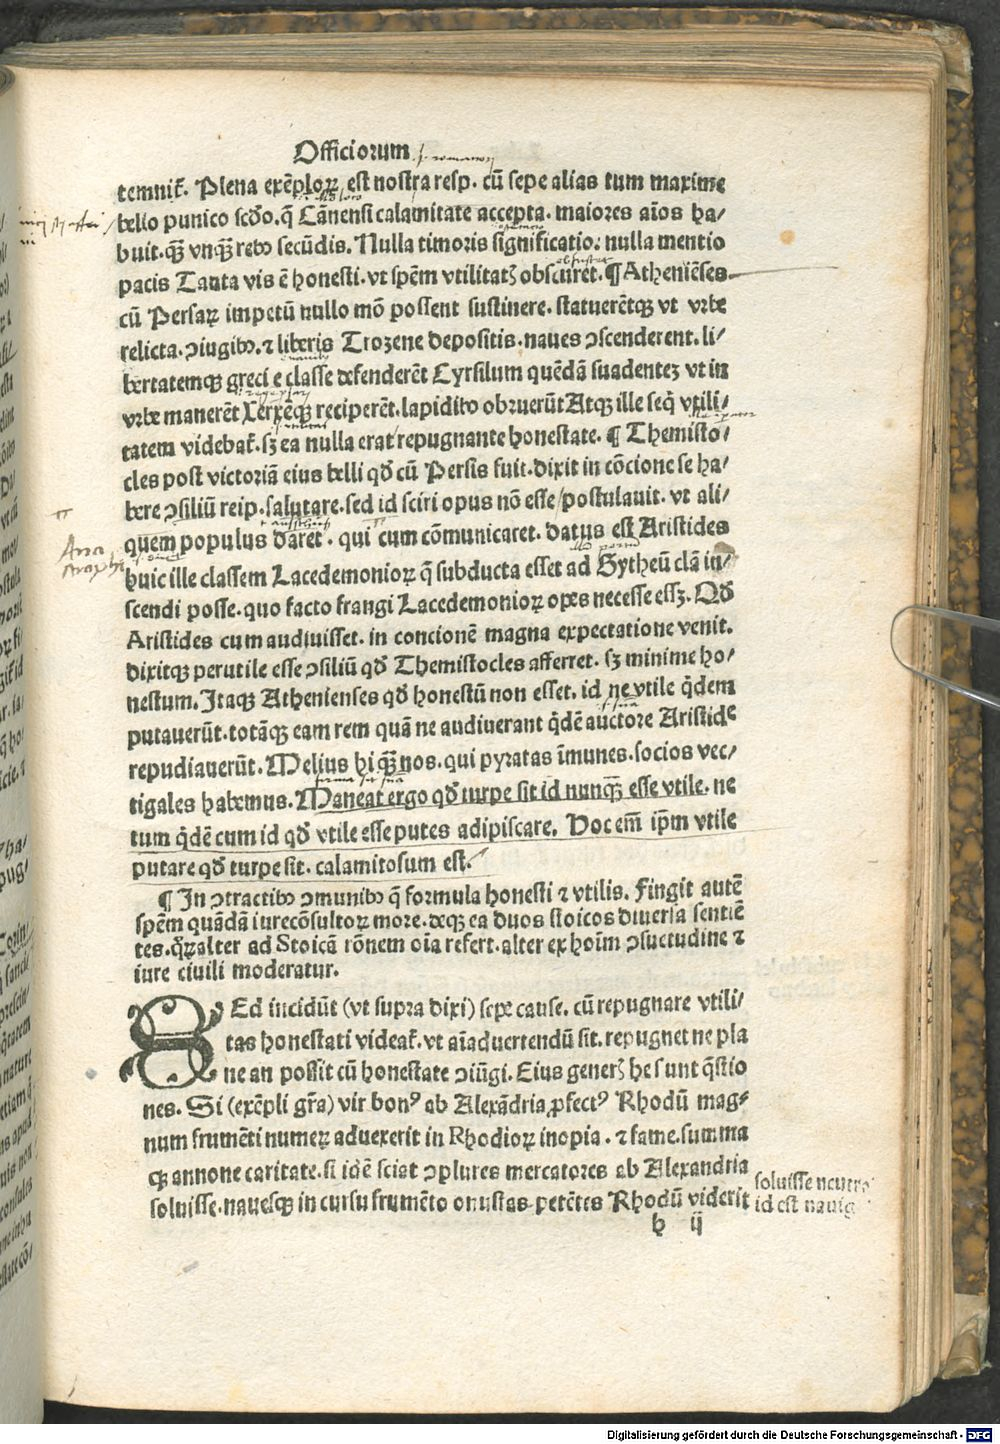 Officiorum
temnit̃. Plena exẽploꝝ est nostra resp. cũ sepe alias tum maxime
bello punico scďo. q̃ Cãnensi calamitate accepta. maiores aĩos ha/
buit. qȝ̃ vnqȝ̃ rebꝰ secũdis. Nulla timoris significatio: nulla mentio
pacis Tanta vis ẽ honesti. vt spẽm vtilitatꝭ obscuret. ¶ Atheniẽses
cũ Persaꝝ impetũ nullo mõ possent sustinere. statuerẽtqȝ vt vrbe
relicta. ↄiugibꝰ. ⁊ liberis Trozene depositis. naues ↄscenderent. li/
bertatemqȝ greci e classe defenderẽt Cyrsilum quẽdã suadenteȝ vt in
vrbe manerẽt Xerxẽqȝ reciperẽt. lapidibꝰ obruerũt Atqȝ ille seq̃ vtili/
tatem videbat̃. sȝ ea nulla erat repugnante honestate. ¶ Themisto/
cles post victoriã eius belli qď cũ Persis fuit. dixit in cõcione se ha/
bere ↄsiliũ reip. salutare. sed id sciri opus nõ esse postulauit. vt ali/
quem populus daret. qui cum cõmunicaret. datus est Aristides
huic ille classem Lacedemonioꝝ q̃ subducta esset ad Gytheũ clã in/
scendi posse. quo facto frangi Lacedemonioꝝ opes necesse essȝ. Qď
Aristides cum audiuisset. in concionẽ magna expectatione venit.
dixitqȝ perutile esse ↄsiliũ qď Themistocles afferret. sȝ minime ho/
nestum. Itaqȝ Athenienses qď honestũ non esset. id ne vtile q̃dem
putauerũt. totãqȝ eam rem quã ne audiuerant q̃dẽ auctore Aristide
repudiauerũt. Melius hi qȝ̃ nos. qui pyratas ĩmunes. socios vec/
tigales habemus. Maneat ergo qď turpe sit id nunqȝ̃ esse vtile. ne
tum q̃dẽ cum id qď vtile esse putes adipiscare. Hoc em̃ ip̃m vtile
putare qď turpe sit. calamitosum est.
¶ In ↄtractibꝰ ↄmunibꝰ q̃ formula honesti ⁊ vtilis. Fingit autẽ
spẽm quãdã iurecõsultoꝝ more. deqȝ ea duos stoicos diuersa sentiẽ
tes. q̃ꝝ alter ad Stoicã rõnem oĩa refert. alter ex hoĩm ↄsuetudine ⁊
iure ciuili moderatur.
SEd incidũt (vt supra dixi) sepe cause. cũ repugnare vtili/
tas honestati videat̃. vt aĩaduertendũ sit. repugnet ne pla
ne an possit cũ honestate ↄiũgi. Eius generꝭ he sunt q̃stio
nes. Si (exẽpli gr̃a) vir bonꝰ ab Alexãdria ꝓfectꝰ Rhodũ mag/
num frumẽti numeꝝ aduexerit in Rhodioꝝ inopia. ⁊ fame. summa
qȝ annone caritate. si idẽ sciat ↄplures mercatores ab Alexandria
soluisse. nauesqȝ in cursu frumẽto onustas petẽtes Rhodũ viderit
soluisse neutro
id est nauig
h ij
Digitalisierung gefördert durch die Deutsche Forschungsgemeinschaft - DFG